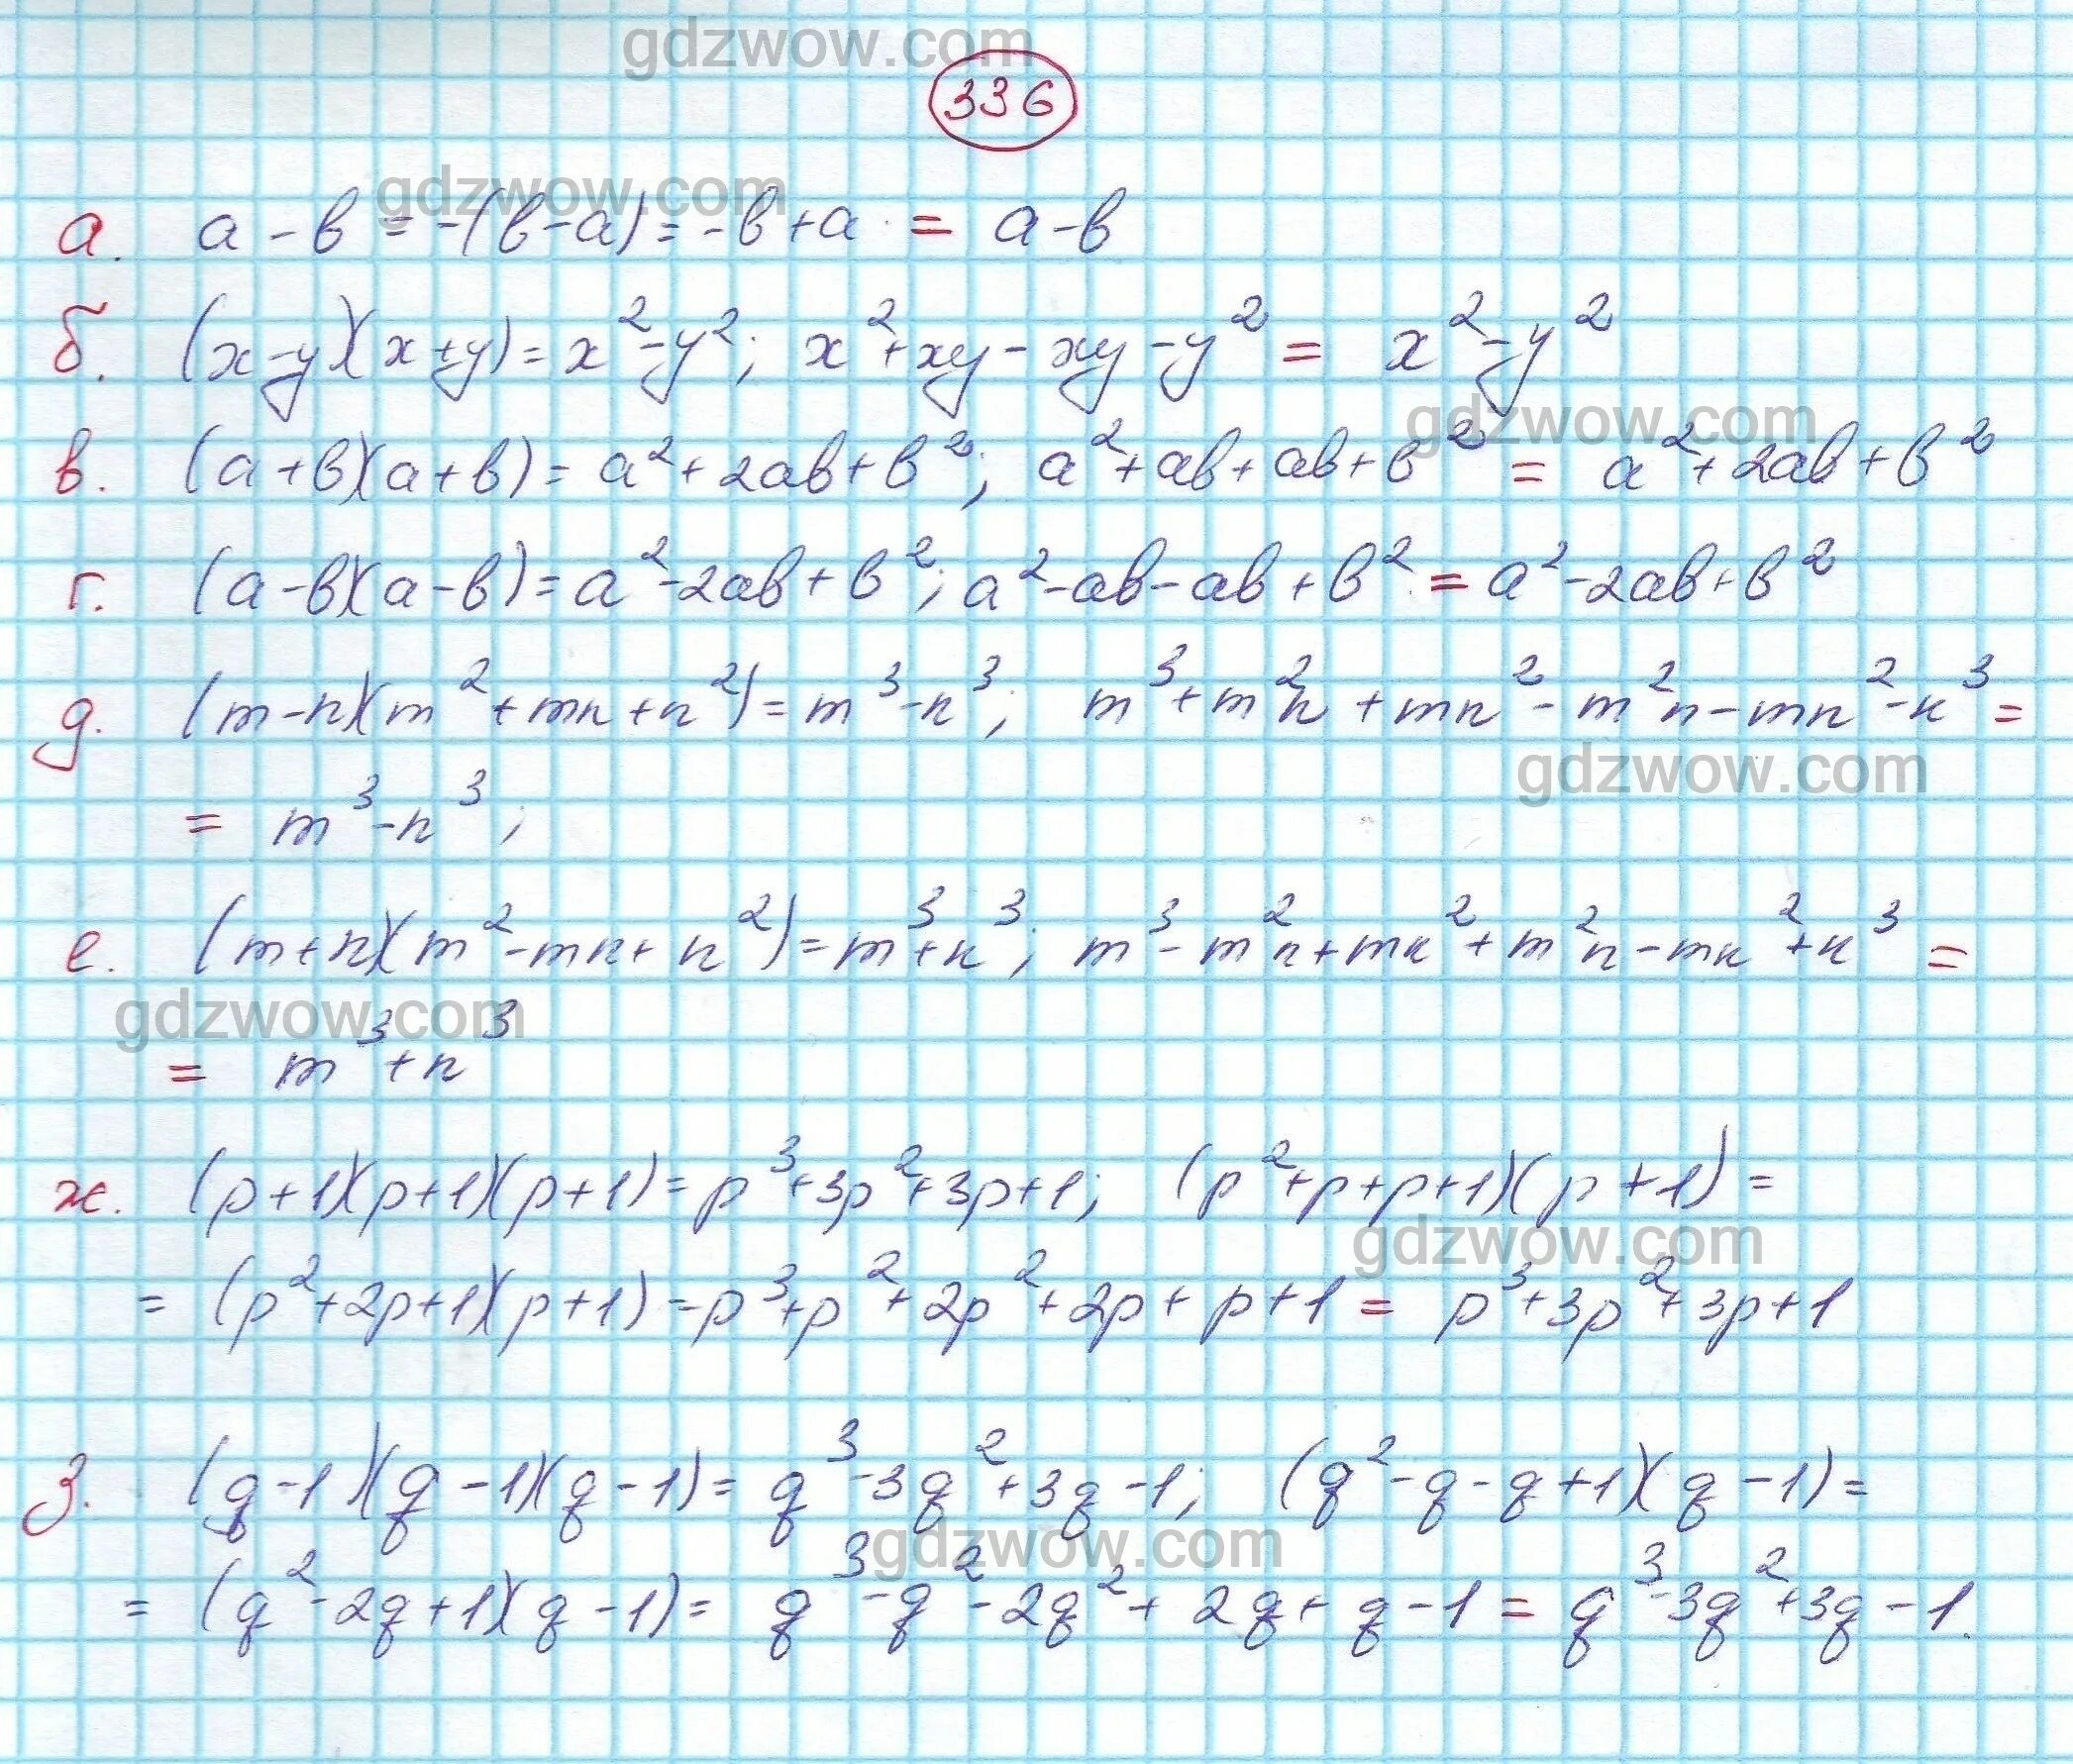 gdzwow.com
336
gdzwow.com
а. a - b = -(b-a) = -b + a = a - b
б. (x-y)(x+y) = x²-y²; x²+xy-xy-y² = x²-y²
gdzwow.com
в. (a+b)(a+b) = a²+2ab+b²; a²+ab+ab+b² = a²+2ab+b²
г. (a-b)(a-b) = a²-2ab+b²; a²-ab-ab+b² = a²-2ab+b²
д. (m-n)(m²+mn+n²) = m³-n³; m³+m²n+mn²-m²n-mn²-n³ =
gdzwow.com
= m³-n³;
е. (m+n)(m²-mn+n²) = m³+n³; m³-m²n+mn²+m²n-mn²+n³ =
gdzwow.com
= m³+n³
ж. (p+1)(p+1)(p+1) = p³+3p²+3p+1; (p²+p+p+1)(p+1) =
gdzwow.com
= (p²+2p+1)(p+1) = p³+p²+2p²+2p+p+1 = p³+3p²+3p+1
з. (q-1)(q-1)(q-1) = q³-3q²+3q-1; (q²-q-q+1)(q-1) =
gdzwow.com
= (q²-2q+1)(q-1) = q³-q²-2q²+2q+q-1 = q³-3q²+3q-1.